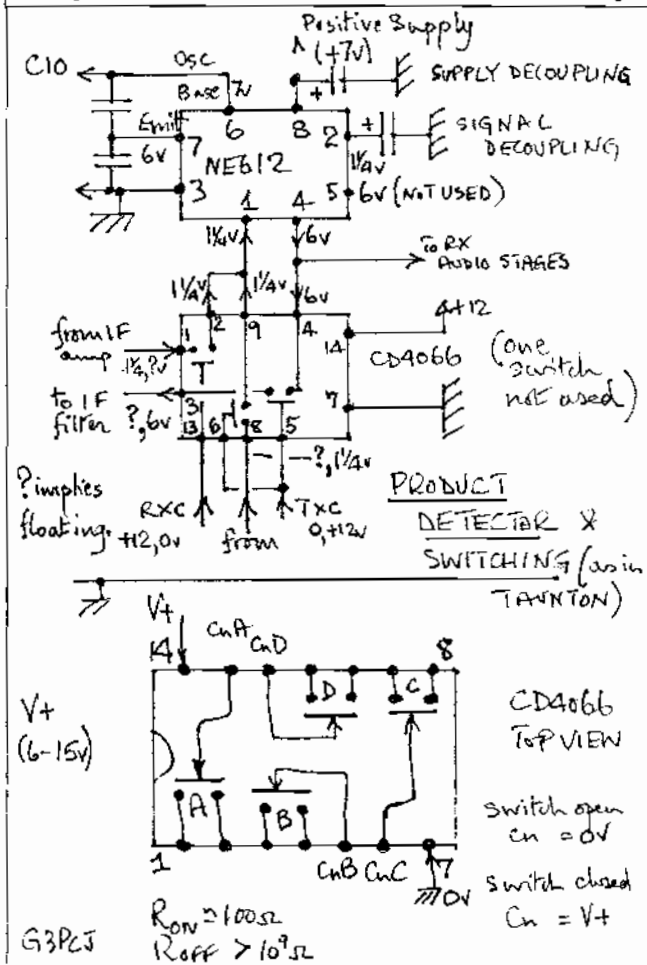 Positive Supply
(+7v)
C10
Osc
Base
7v
+
SUPPLY DECOUPLING
Emitt
6v
7
6
8
2
+
SIGNAL
DECOUPLING
1¼v
NE612
3
5
6v (NOT USED)
1
4
1¼v
6v
To RX
AUDIO STAGES
1¼v
1¼v
6v
from IF
amp
1¼,?v
1
2
9
4
14
+12
CD4066
(one
switch
not used)
to IF
filter
?,6v
3
13
6
8
5
7
?,1¼v
? implies
floating.
RXC
+12,0v
from
TXC
0,+12v
PRODUCT
DETECTOR &
SWITCHING (as in
TAUNTON)
V+
14
CnA
CnD
8
D
C
V+
(6-15v)
A
B
CD4066
TOP VIEW
1
CnB
CnC
7
0v
switch open
Cn = 0V
switch closed
Cn = V+
G3PCJ
RON ≈ 100Ω
ROFF > 10⁹Ω